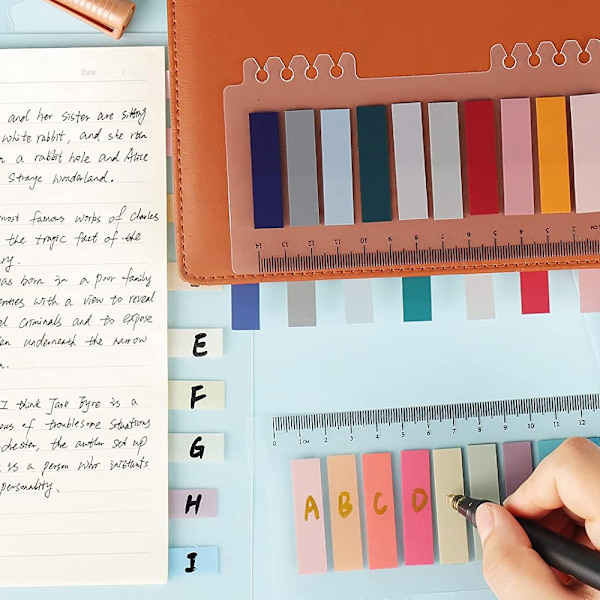 Date /
and her sister are sitting
white rabbit, and she ran
a rabbit hole and Alice
Strange wonderland.
most famous works of Charles
the tragic fact of the
ry.
as born in a poor family
enties with a view to reveal
el criminals and to expose
en underneath the narrow
n.
I think Jane Eyre is a
ous of troublesome situations
chester, the author sed up
is a person who intants
personality.
E
F
G
H
I
14 13 12 11 10 9 8 7 6 5 4 3 2 1
0 1CM 2 3 4 5 6 7 8 9 10 11 12
A B C D